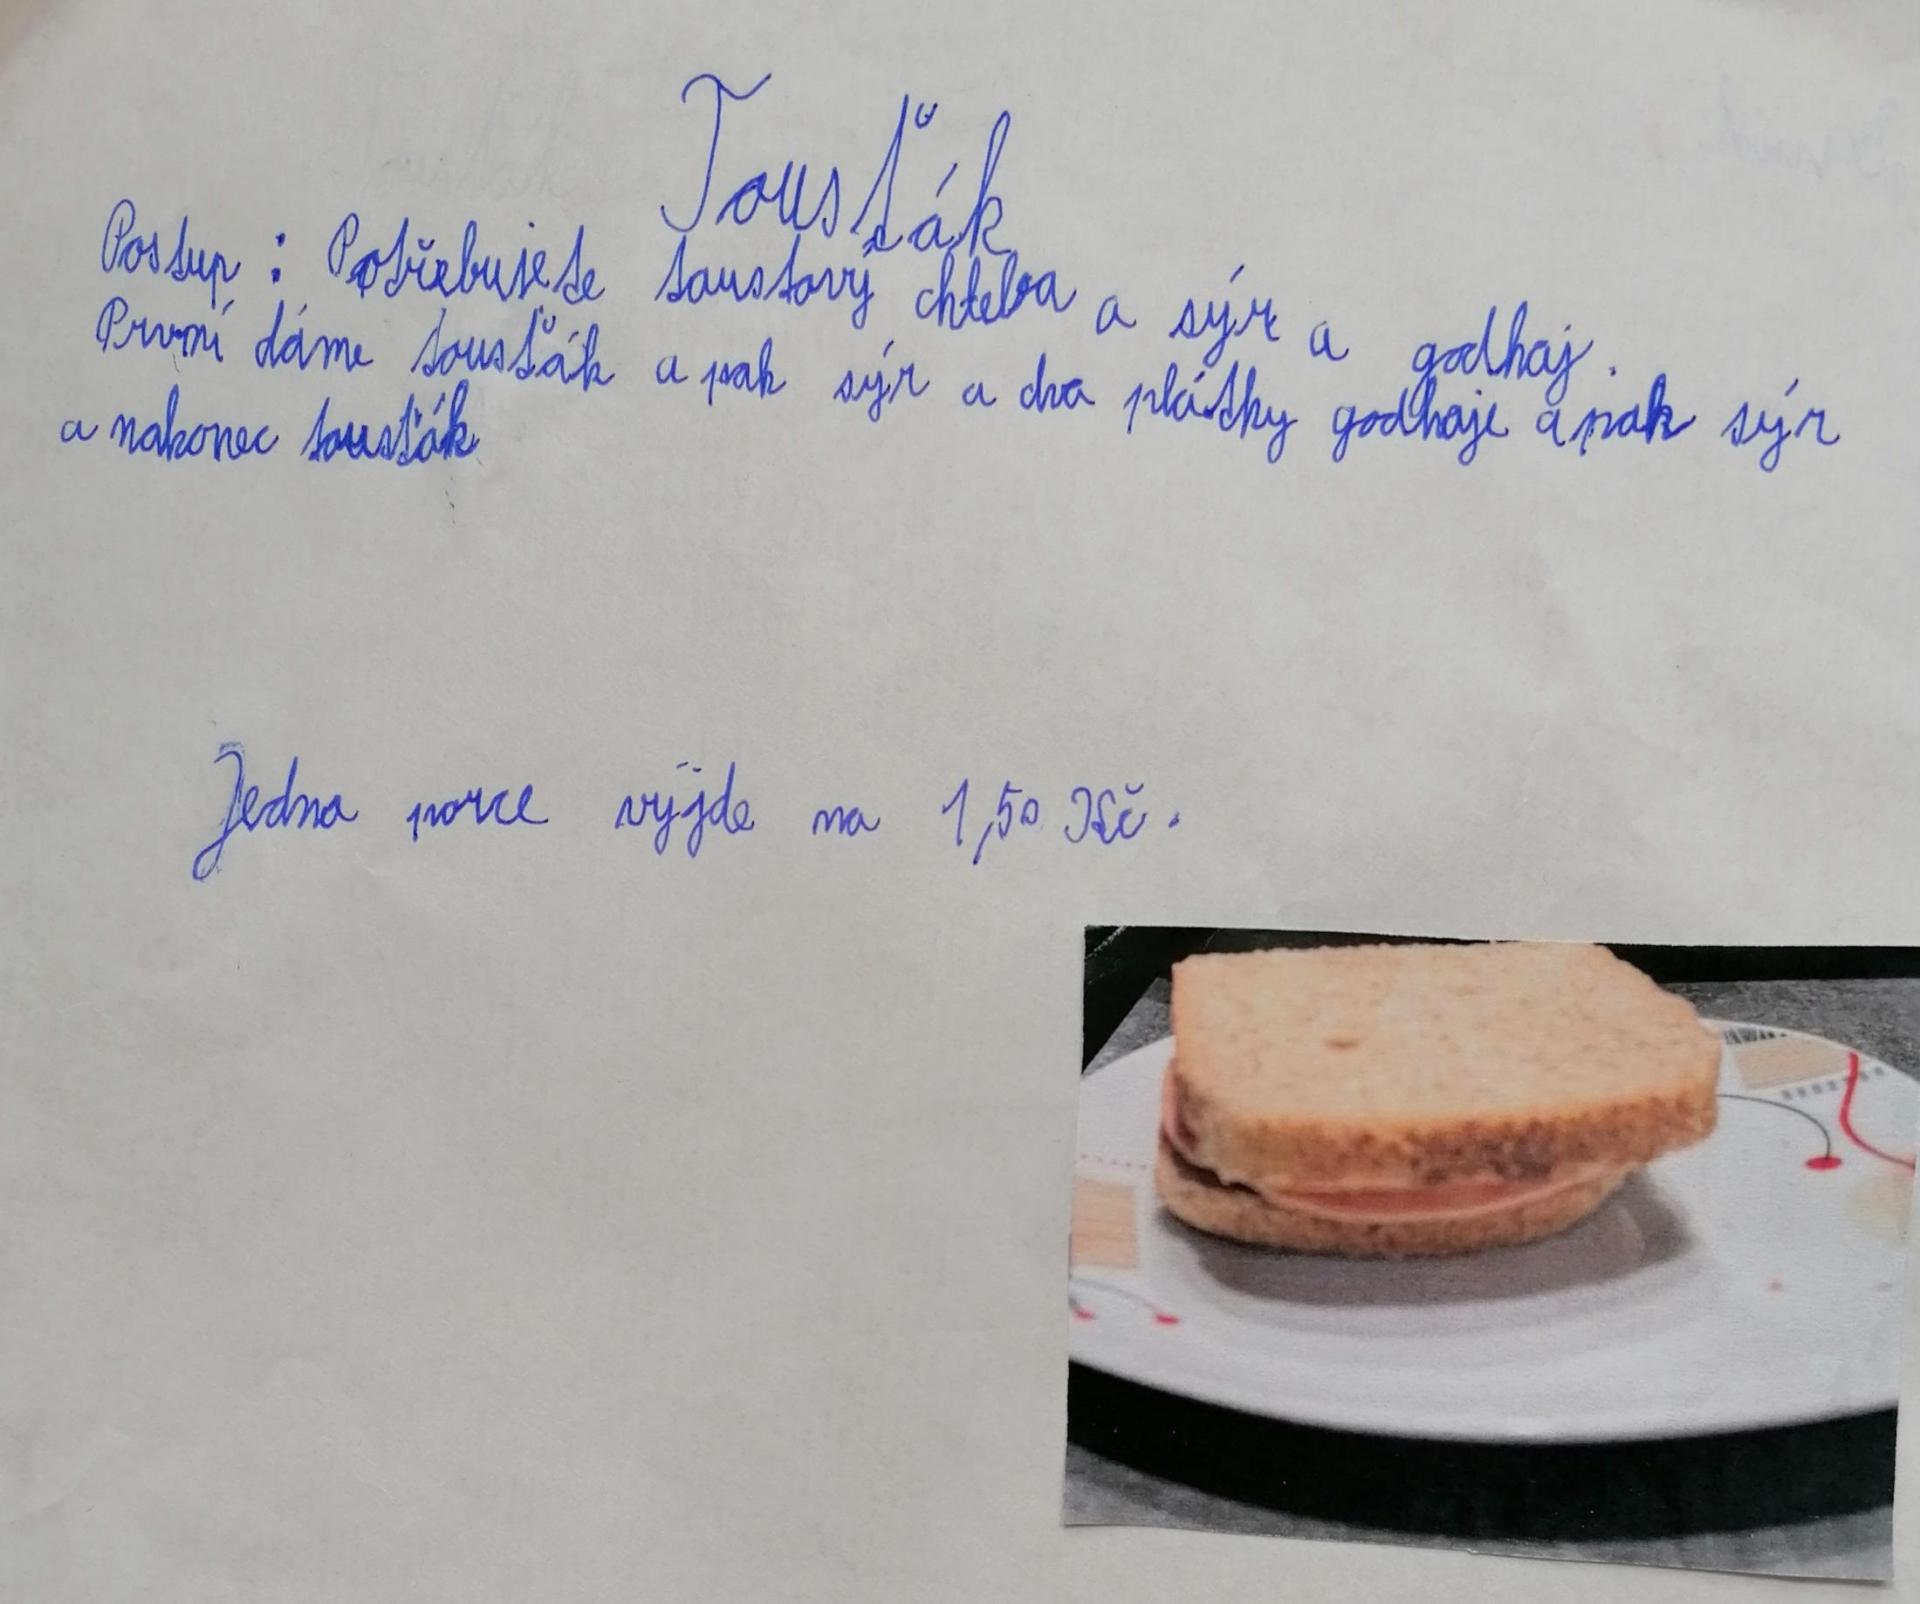 Tousťák
Postup: Potřebujete toustový chleba a sýr a godhaj.
První dáme tousťák a pak sýr a dva plátky godhaje a pak sýr
a nakonec tousťák
Jedna porce výjde na 1,50 Kč.